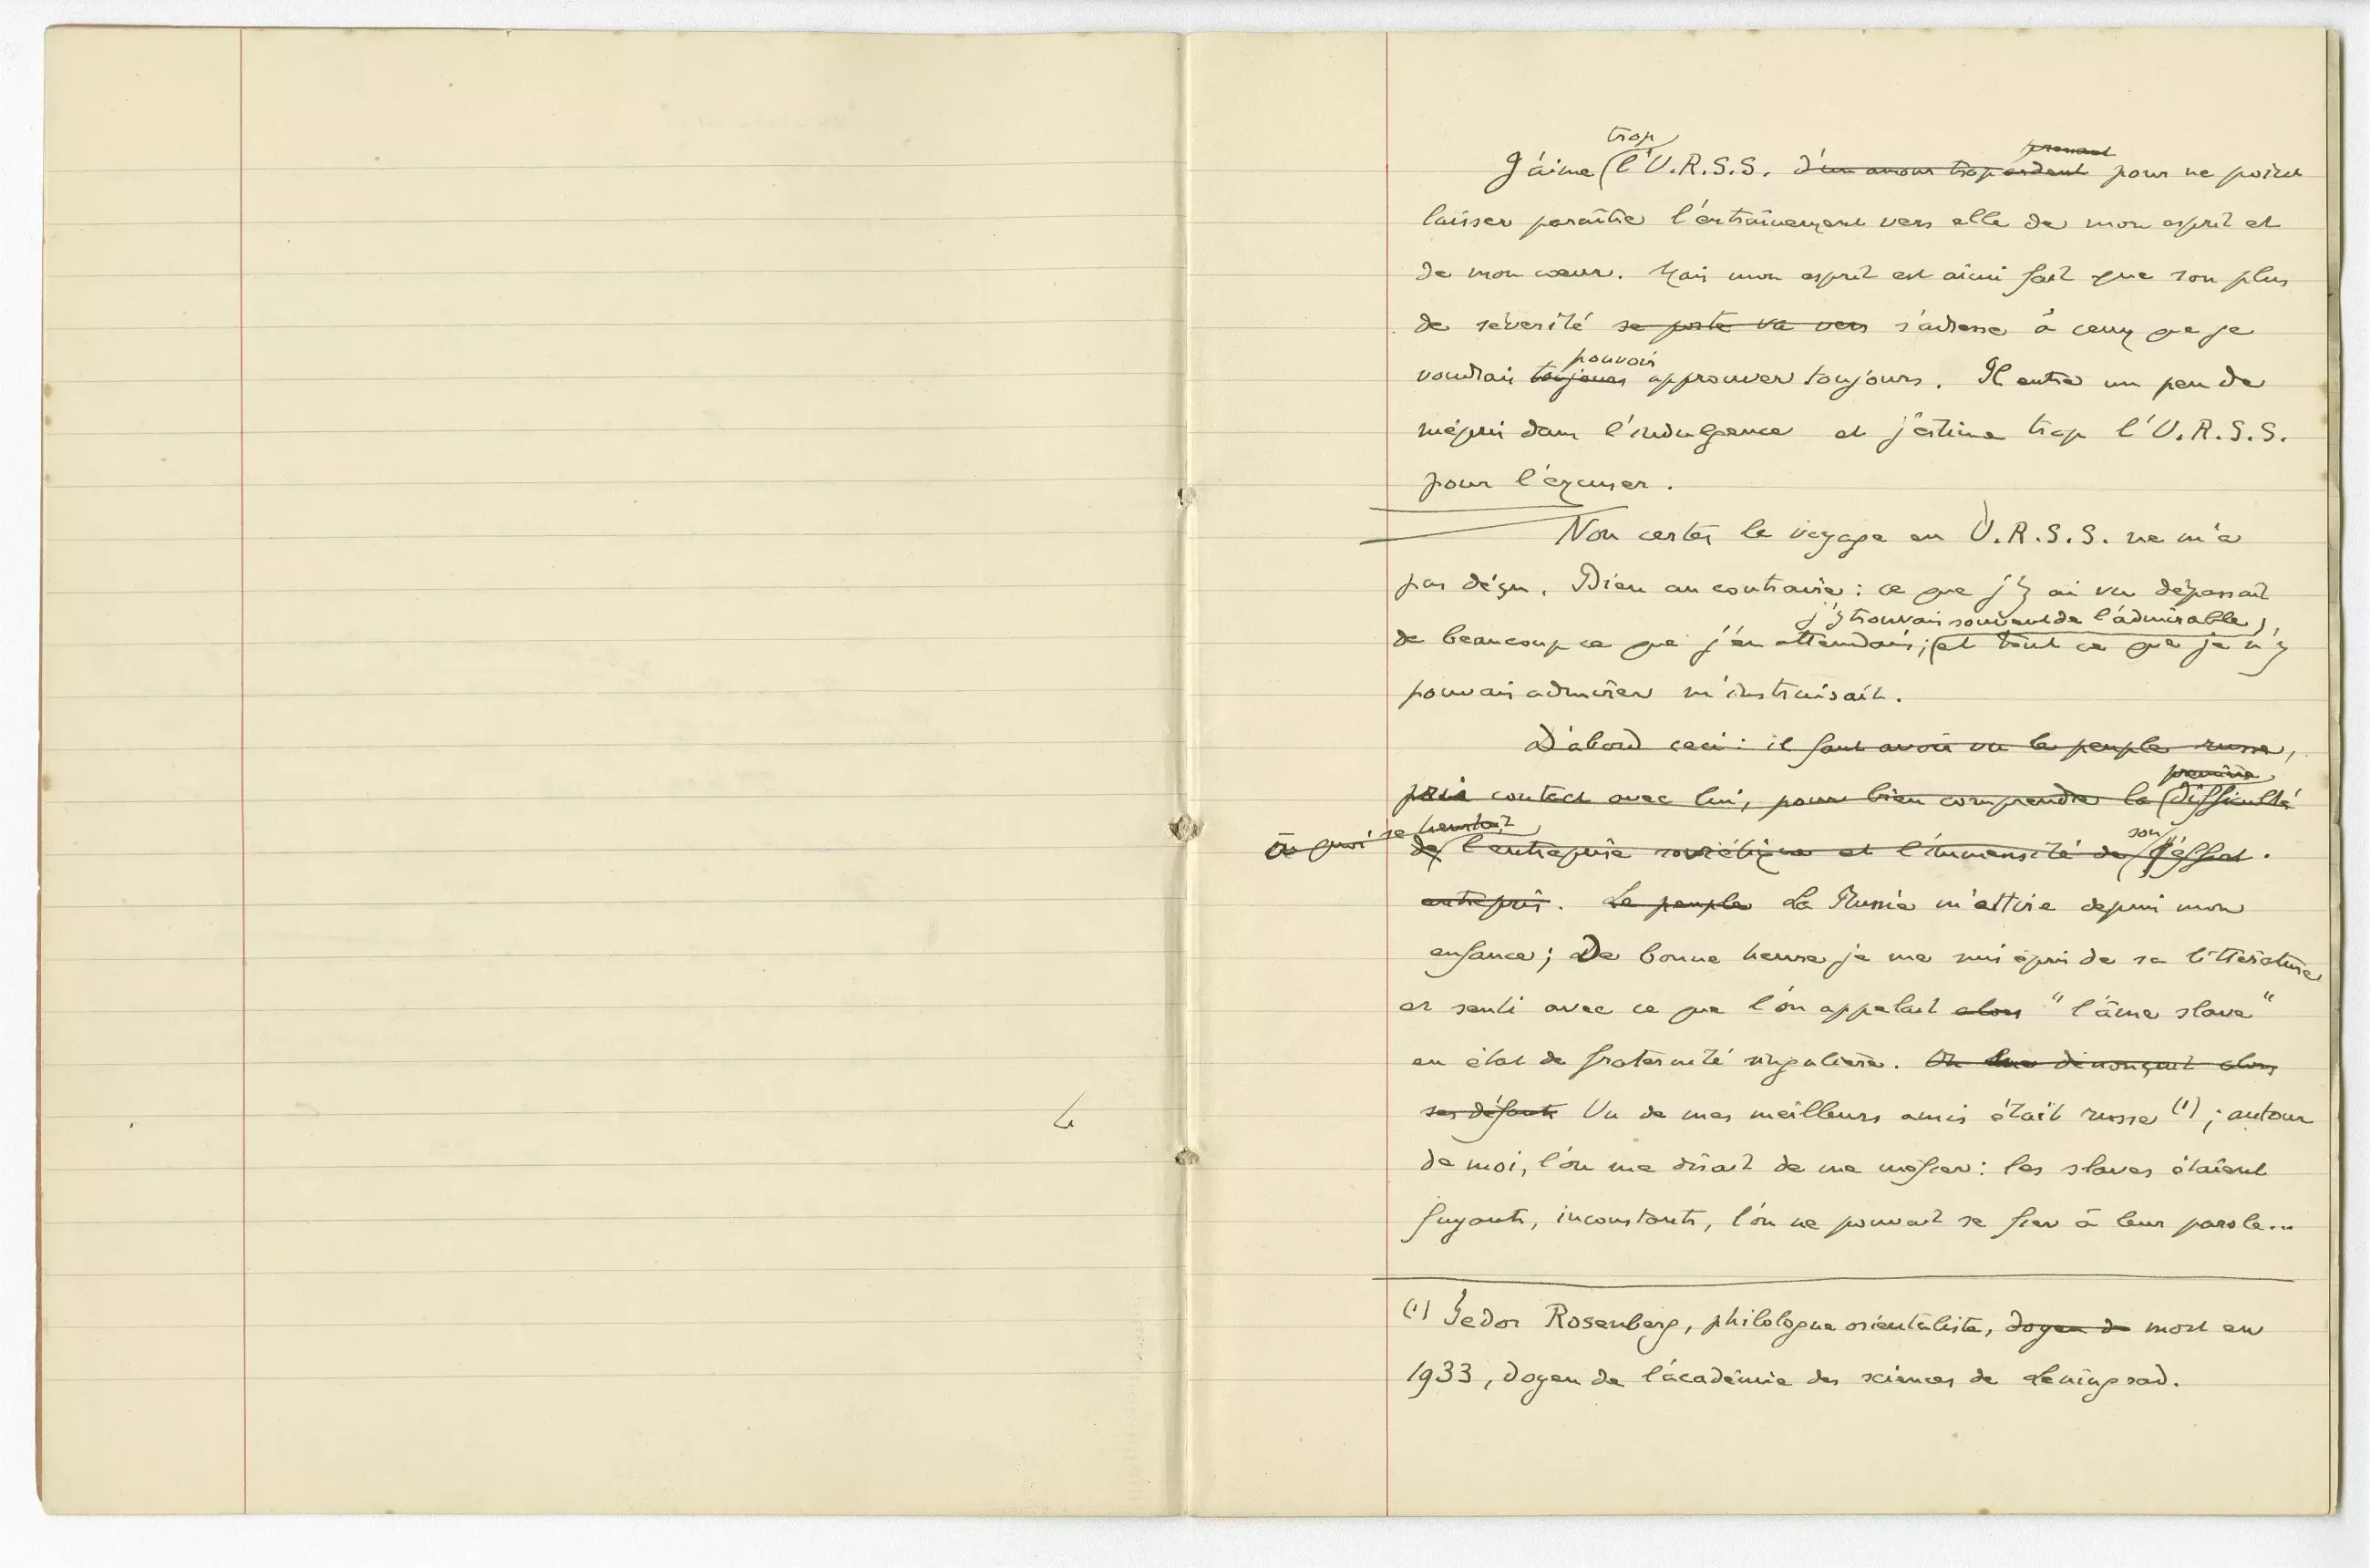 trop
J'aime l'U.R.S.S. d'un amour trop ardent pour ne point
laisser paraître l'entraînement vers elle de mon esprit et
de mon cœur. Mais mon esprit est ainsi fait que son plus
de sévérité se porte va vers s'adresse à ceux que je
pouvoir
voudrais toujours approuver toujours. Il entre un peu de
mépris dans l'indulgence et j'estime trop l'U.R.S.S.
pour l'excuser.
Non certes le voyage en U.R.S.S. ne m'a
pas déçu. Bien au contraire : ce que j'y ai vu dépassait
j'y trouvais souvent de l'admirable ;
de beaucoup ce que j'en attendais ; et tout ce que je n'y
pouvais admirer m'instruisait.
D'abord ceci : il faut avoir vu le peuple russe,
première
pris contact avec lui, pour bien comprendre la difficulté
à quoi se heurtait son
de l'entreprise soviétique et l'immensité de l'effort.
entrepris. Le peuple La Russie m'attire depuis mon
enfance ; De bonne heure je me suis épris de sa littérature
et senti avec ce que l'on appelait alors "l'âme slave"
en état de fraternité singulière. On dénonçait alors
ses défauts Un de mes meilleurs amis était russe (1) ; autour
de moi, l'on me disait de me méfier : les slaves étaient
fuyants, inconstants, l'on ne pouvait se fier à leur parole...
(1) Fedor Rosenberg, philologue orientaliste, doyen de mort en
1933, doyen de l'académie des sciences de Leningrad.